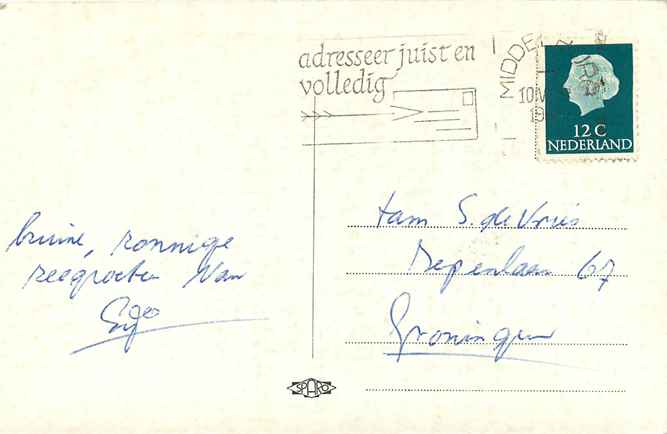 adresseer juist en
volledig
MIDDE
10 V
19
12 C
NEDERLAND
bruine, zonnige
zeegroeten van
fam S. de Vries
Iepenlaan 67
Groningen
SPARO